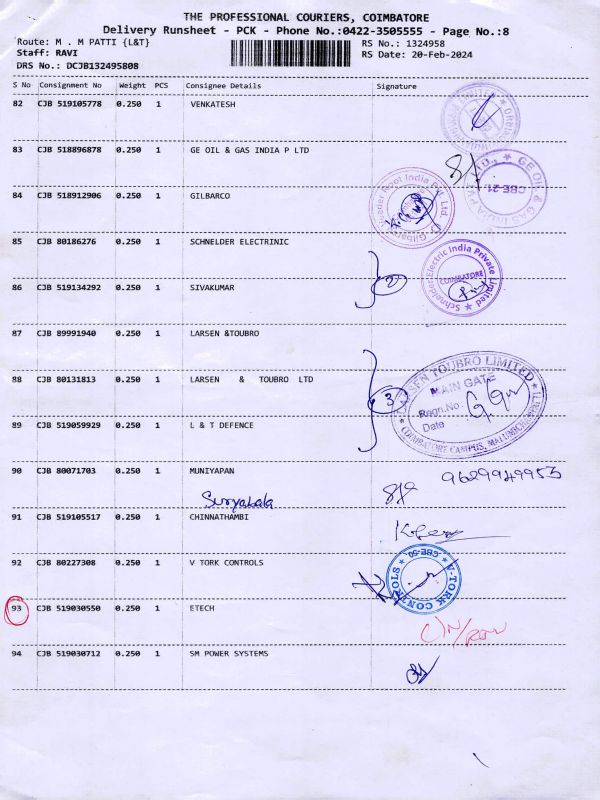 THE PROFESSIONAL COURIERS, COIMBATORE
Delivery Runsheet - PCK - Phone No.:0422-3505555 - Page No.:8
Route: M . M PATTI {L&T} RS No.: 1324958
Staff: RAVI RS Date: 20-Feb-2024
DRS No.: DCJB132495808
S No Consignment No Weight PCS Consignee Details Signature
82 CJB 519105778 0.250 1 VENKATESH
83 CJB 518896878 0.250 1 GE OIL & GAS INDIA P LTD
GE OIL & GAS INDIA P LTD., CBE-21
84 CJB 518912906 0.250 1 GILBARCO
Gilbarco Veeder Root India Pvt. Ltd.
85 CJB 80186276 0.250 1 SCHNELDER ELECTRINIC
Schneider Electric India Private Limited
COIMBATORE
2
86 CJB 519134292 0.250 1 SIVAKUMAR
87 CJB 89991940 0.250 1 LARSEN &TOUBRO
LARSEN TOUBRO LIMITED
MAIN GATE
88 CJB 80131813 0.250 1 LARSEN & TOUBRO LTD
3
Regn.No
Date
COIMBATORE CAMPUS,
89 CJB 519059929 0.250 1 L & T DEFENCE
90 CJB 80071703 0.250 1 MUNIYAPAN
9629949953
Suryakala
91 CJB 519105517 0.250 1 CHINNATHAMBI
92 CJB 80227308 0.250 1 V TORK CONTROLS
V-TORK CONTROLS CBE-50
93 CJB 519030550 0.250 1 ETECH
94 CJB 519030712 0.250 1 SM POWER SYSTEMS